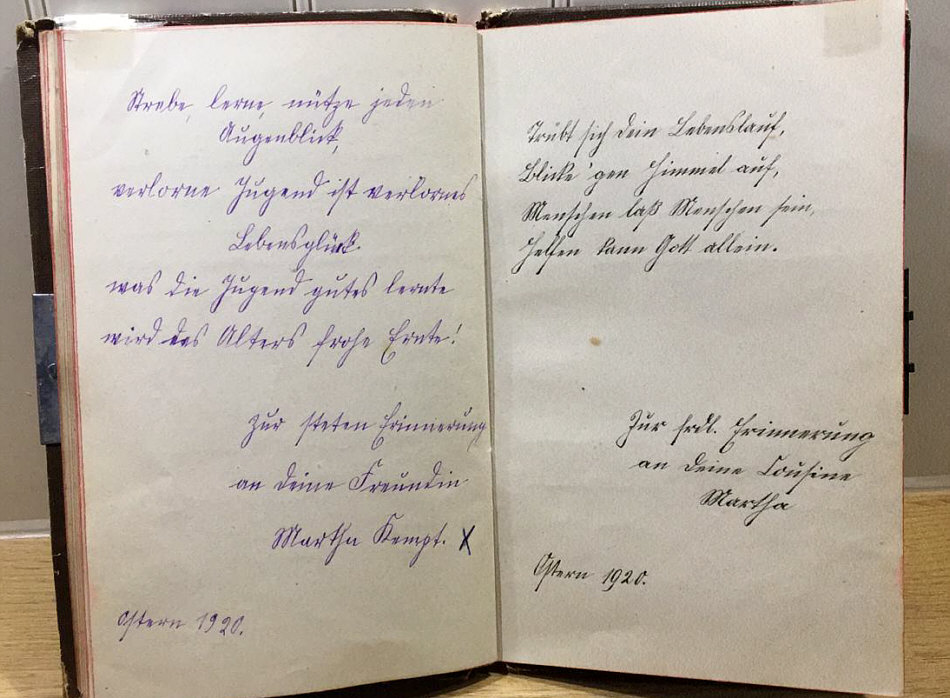 Strebe, lerne, nütze jeden
Augenblick,
verlorne Jugend ist verlornes
Lebensglück.
was die Jugend gutes lernte
wird des Alters frohe Ernte!
Zur steten Erinnerung
an deine Freundin
Martha Kempf. X
Ostern 1920.
Trübt sich dein Lebenslauf,
Blicke' gen Himmel auf,
Menschen laß Menschen sein,
Helfen kann Gott allein.
Zur frdl. Erinnerung
an deine Cousine
Martha
Ostern 1920.